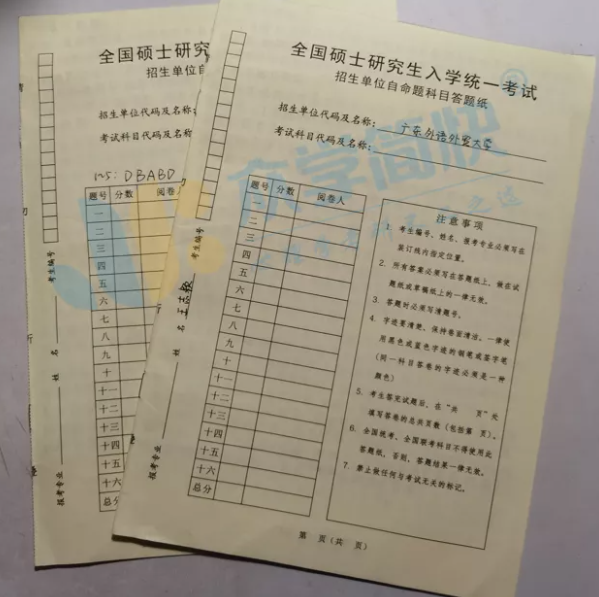 全国硕士研究
招生单位自
招生单位代码及名称:
考试科目代码及名称:
125: DBABD
题号 分数 阅卷人
一
二
三
四
五
六
七
八
九
十
十一
十二
十三
十四
十五
十六
总分
考生编号
姓 名
报考专业
全国硕士研究生入学统一考试
招生单位自命题科目答题纸
招生单位代码及名称: 广东外语外贸大学
考试科目代码及名称:
题号 分数 阅卷人
一
二
三
四
五
六
七
八
九
十
十一
十二
十三
十四
十五
十六
总分
注意事项
1. 考生编号、姓名、报考专业必须写在
装订线内指定位置。
2. 所有答案必须写在答题纸上,做在试
题纸或草稿纸上的一律无效。
3. 答题时必须写清题号。
4. 字迹要清楚、保持卷面清洁。一律使
用黑色或蓝色字迹的钢笔或签字笔
(同一科目答卷的字迹必须是一种
颜色)
5. 考生答完试题后,在“共 页”处
填写答卷的总共页数(包括第 页)。
6. 全国统考、全国联考科目不得使用此
答题纸,否则,答题结果一律无效。
7. 禁止做任何与考试无关的标记。
第 页(共 页)
考生编号
姓 名